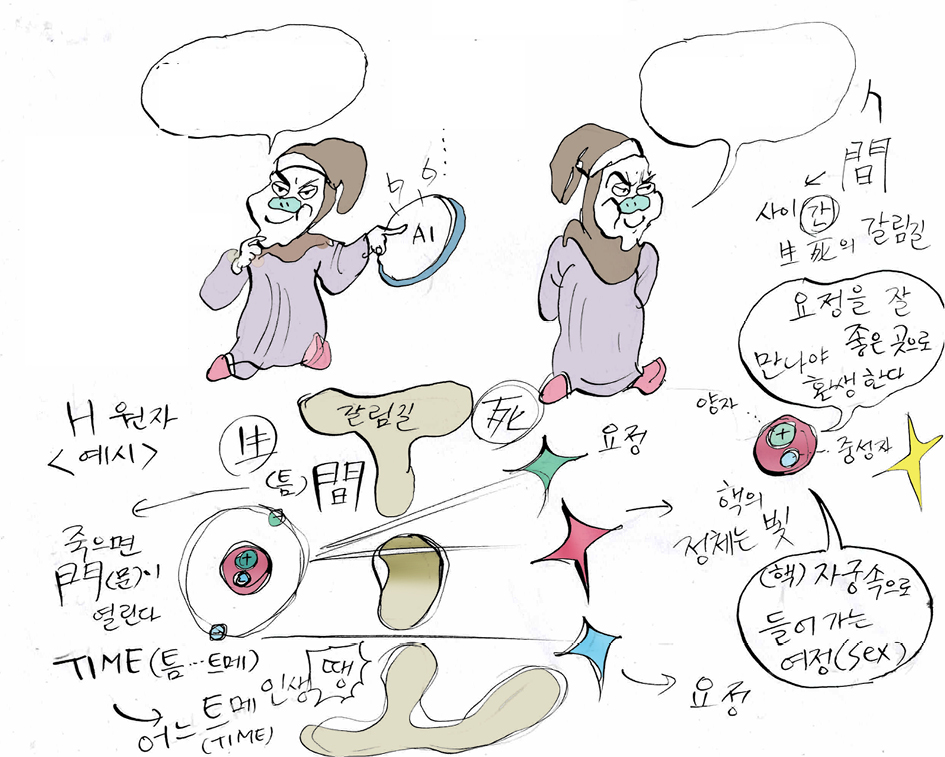 AI
人
間
사이 간
生 死의 갈림길
요정을 잘
만나야 좋은 곳으로
환생한다
양자
+
중성자
H 원자
<예시>
生
갈림길
死
요정
(틈) 間
죽으면
門(문)이
열린다
+
핵의
정체는 빛
(핵) 자궁속으로
들어가는
여정(Sex)
TIME(틈…트메)
어느 트메 인생 땡
(TIME)
요정